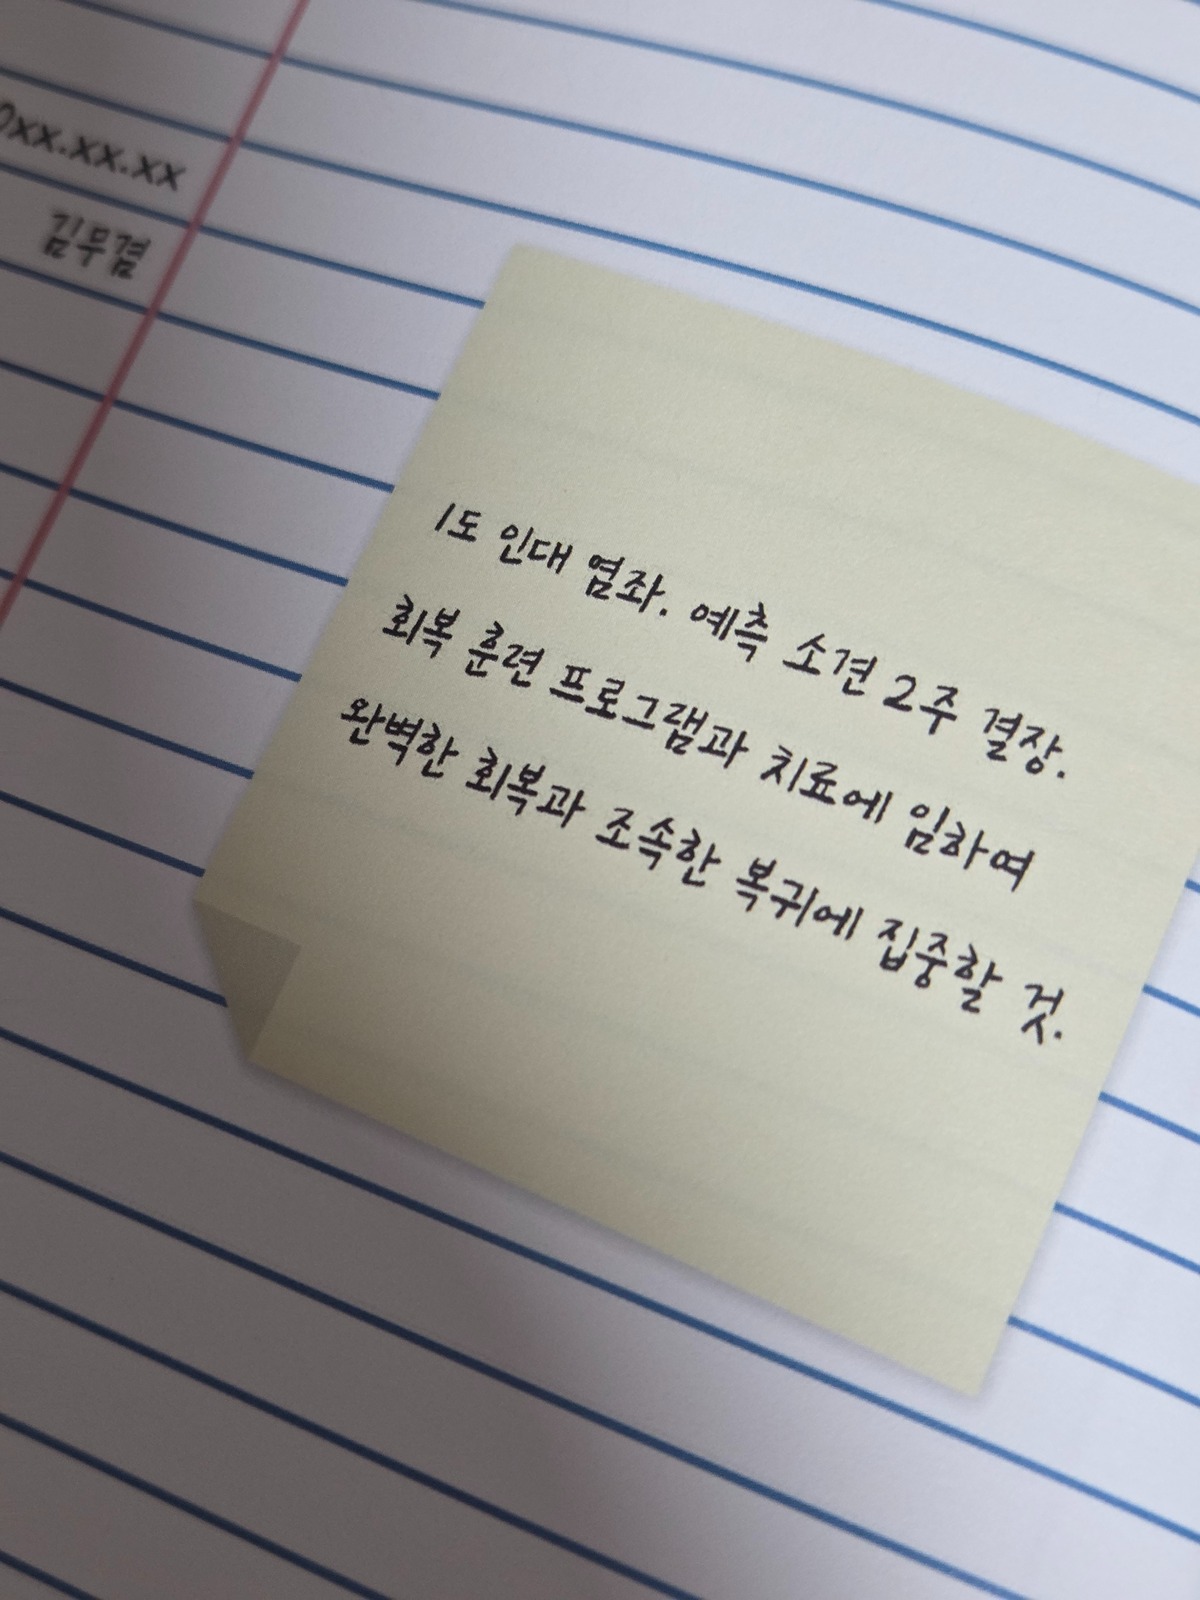 0xx.xx.xx
김무겸
1도 인대 염좌. 예측 소견 2주 결장.
회복 훈련 프로그램과 치료에 임하여
완벽한 회복과 조속한 복귀에 집중할 것.